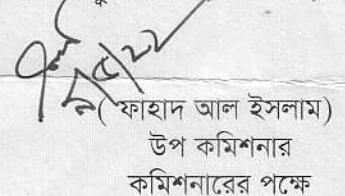 (ফাহাদ আল ইসলাম)
উপ কমিশনার
কমিশনারের পক্ষে